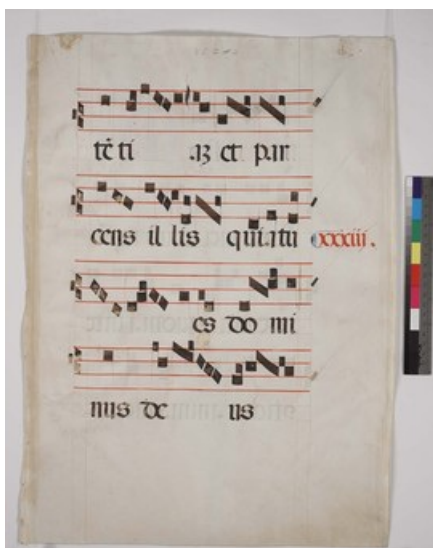 tē ti az et par
cens il lis quia tu
xxxiij.
es do mi
nus de us